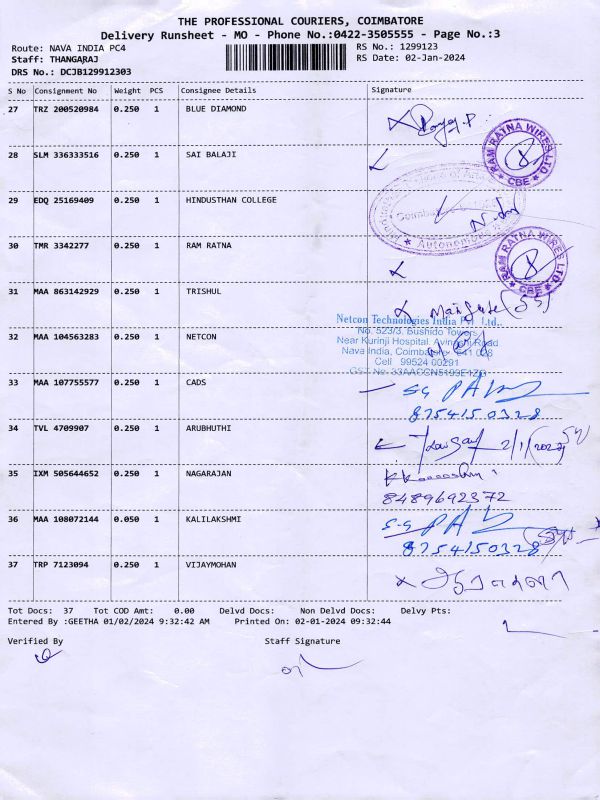 THE PROFESSIONAL COURIERS, COIMBATORE
Delivery Runsheet - MO - Phone No.:0422-3505555 - Page No.:3
Route: NAVA INDIA PC4
RS No.: 1299123
Staff: THANGARAJ
RS Date: 02-Jan-2024
DRS No.: DCJB129912303
S No Consignment No Weight PCS Consignee Details Signature
27 TRZ 200520984 0.250 1 BLUE DIAMOND
28 SLM 336333516 0.250 1 SAI BALAJI
RAM RATNA WIRES LTD
★ CBE ★
29 EDQ 25169409 0.250 1 HINDUSTHAN COLLEGE
★ Autonomous ★
30 TMR 3342277 0.250 1 RAM RATNA
RAM RATNA WIRES LTD
★ CBE ★
31 MAA 863142929 0.250 1 TRISHUL
32 MAA 104563283 0.250 1 NETCON
Netcon Technologies India Pvt. Ltd.,
No. 523/3, Bushido Towers,
Near Kurinji Hospital, Avinashi Road
Nava India, Coimbatore
Cell 99524 00291
GST No. 33AACCN5193E1ZG
33 MAA 107755577 0.250 1 CADS
8754150328
34 TVL 4709907 0.250 1 ARUBHUTHI
35 IXM 505644652 0.250 1 NAGARAJAN
8489692372
36 MAA 108072144 0.050 1 KALILAKSHMI
8754150328
37 TRP 7123094 0.250 1 VIJAYMOHAN
Tot Docs: 37 Tot COD Amt: 0.00 Delvd Docs: Non Delvd Docs: Delvy Pts:
Entered By :GEETHA 01/02/2024 9:32:42 AM Printed On: 02-01-2024 09:32:44
Verified By Staff Signature